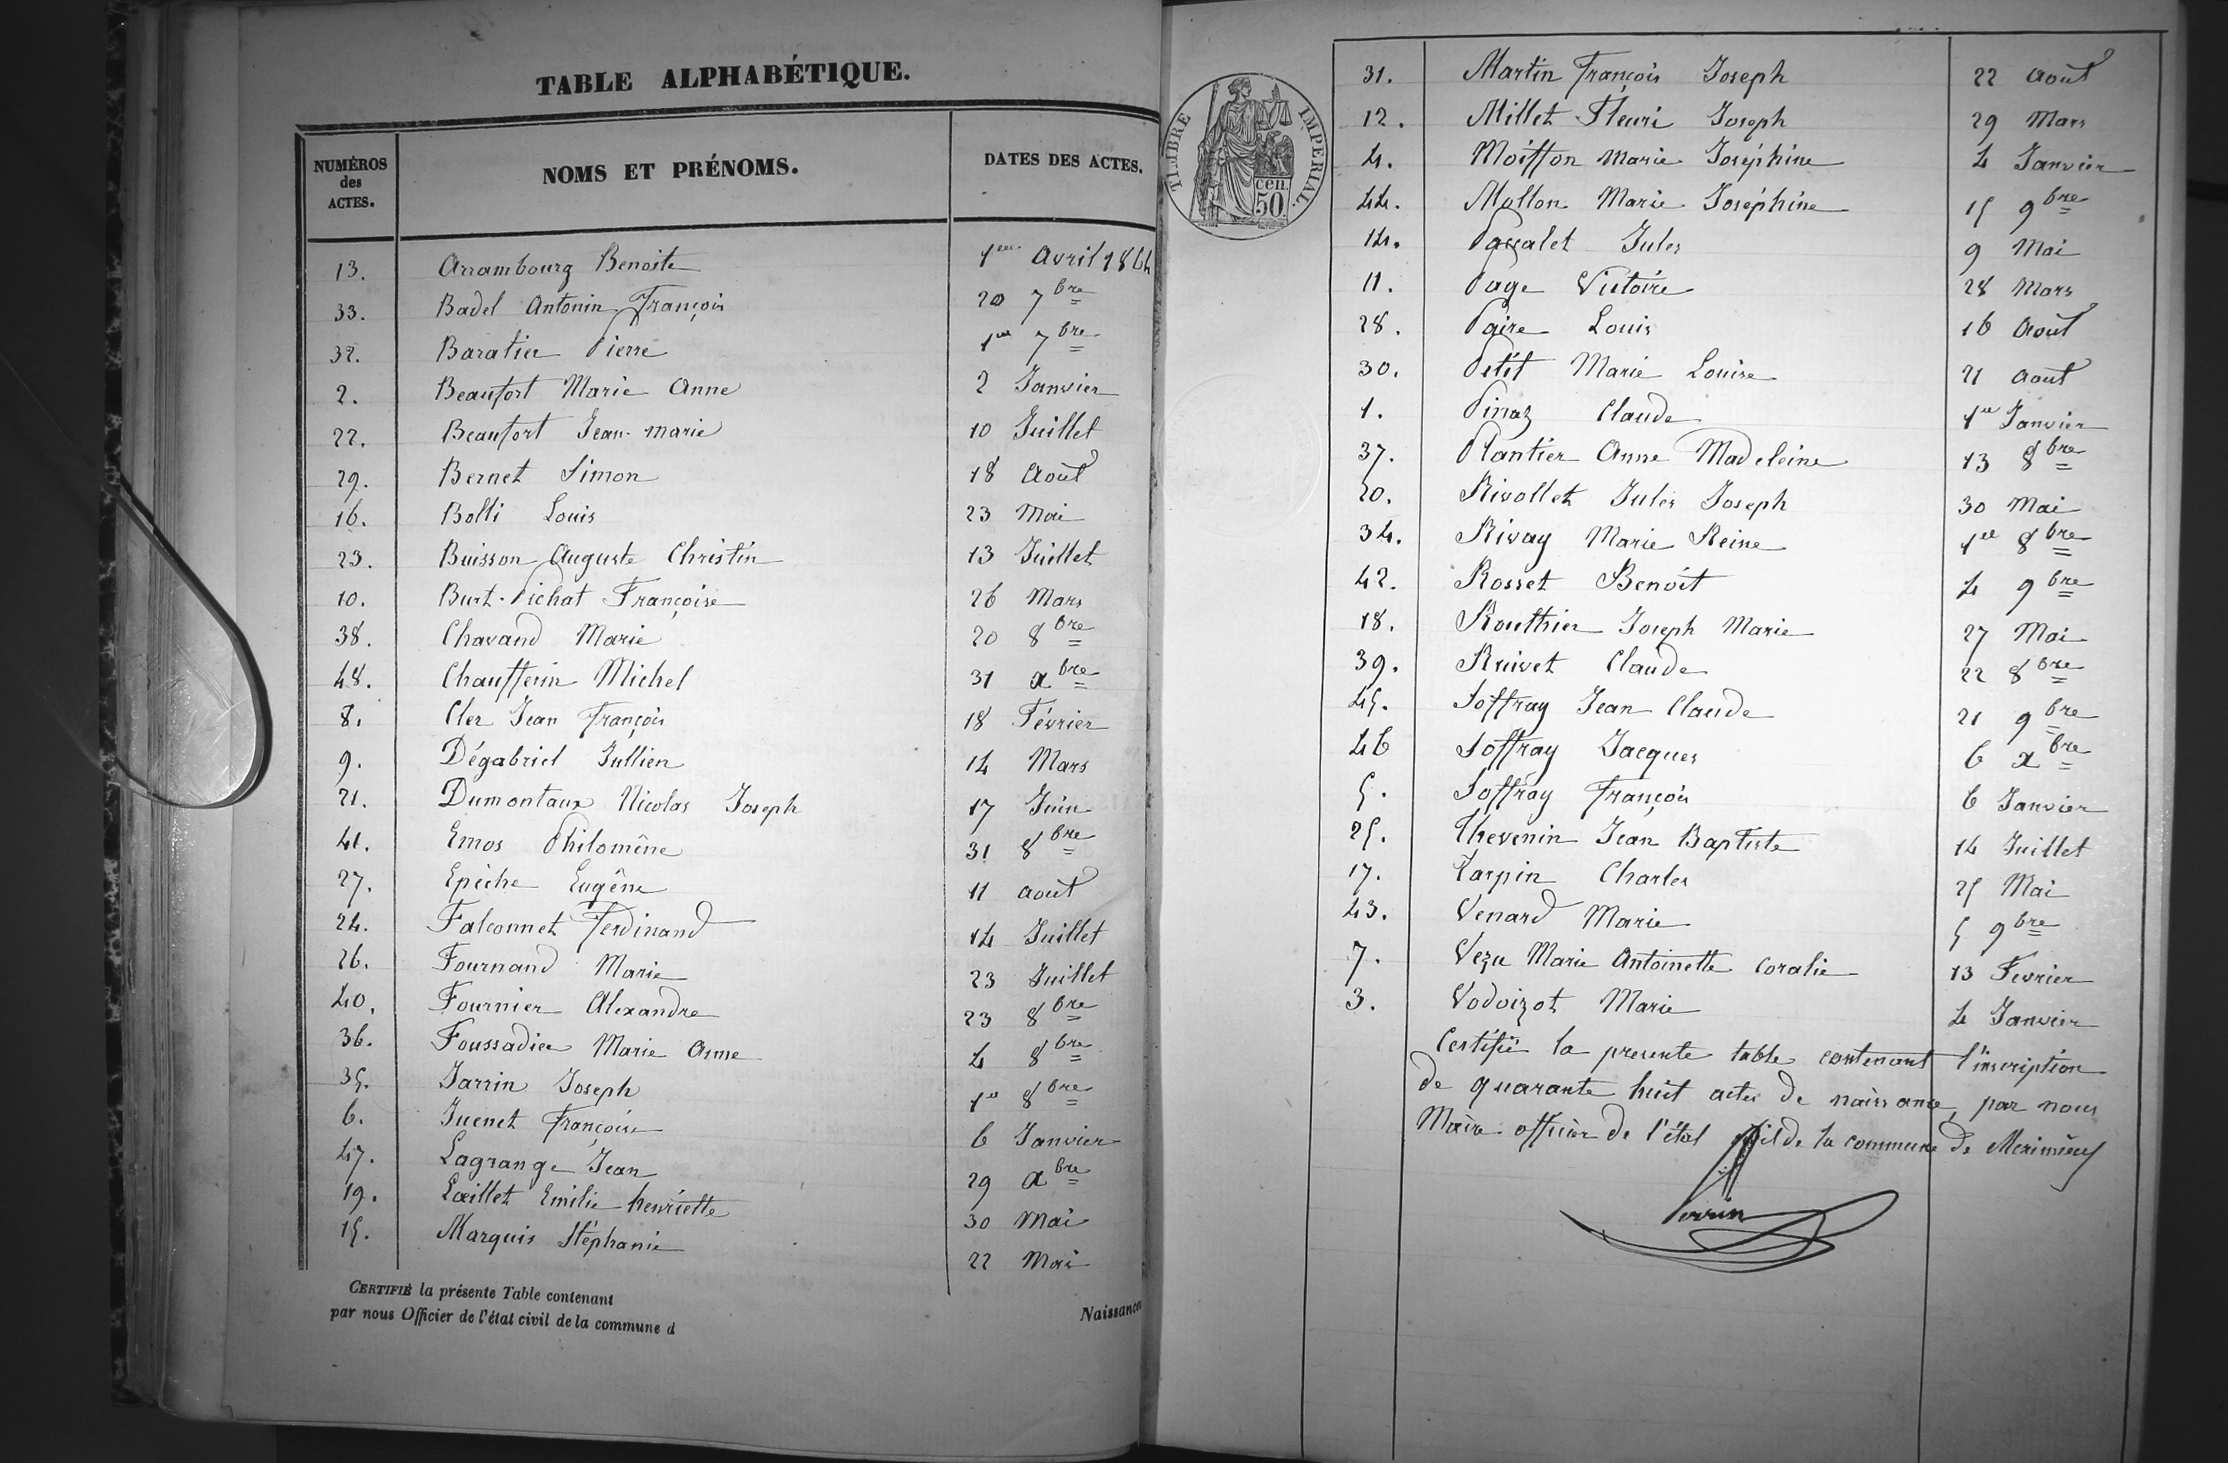 TABLE ALPHABÉTIQUE.
NUMÉROS des ACTES. NOMS ET PRÉNOMS. DATES DES ACTES.
13. Arrambourg Benoite 1er Avril 1864
33. Badel Antonin François 20 7bre
32. Baratier Pierre 1er 7bre
2. Beaufort Marie Anne 2 Janvier
22. Beaufort Jean-marie 10 Juillet
29. Bernet Simon 18 Août
16. Bolli Louis 23 Mai
23. Buisson Auguste Christin 13 Juillet
10. Burt-Pichat Françoise 26 Mars
38. Chavand Marie 20 8bre
48. Chaufferin Michel 31 xbre
8. Cler Jean François 18 Février
9. Dégabriel Jullien 14 Mars
21. Dumontaux Nicolas Joseph 17 Juin
41. Emos Philomène 31 8bre
27. Epèche Eugène 11 août
24. Falconnet Ferdinand 14 Juillet
26. Fournand Marie 23 Juillet
40. Fournier Alexandre 23 8bre
36. Foussadier Marie Anne 4 8bre
35. Jarrin Joseph 1er 8bre
6. Juenet François 6 Janvier
47. Lagrange Jean 29 xbre
19. Lœillet Emilie henriette 30 Mai
15. Marquis Stéphanie 22 Mai
CERTIFIÉ la présente Table contenant Naissances
par nous Officier de l'état civil de la commune d
TIMBRE IMPERIAL.
50 cen.
31. Martin François Joseph 22 août
12. Millet Fleuri Joseph 29 Mars
4. Moiffon Marie Joséphine 4 Janvier
44. Mollon Marie Joséphine 15 9bre
14. Jules 9 Mai
11. Page Victoire 28 Mars
28. Paire Louis 16 Août
30. Petit Marie Louise 21 août
1. Pinaz Claude 1er Janvier
37. Plantier Anne Madeleine 13 8bre
20. Rivollet Jules Joseph 30 Mai
34. Rivay Marie Reine 1er 8bre
42. Rosset Benoît 4 9bre
18. Routhier Joseph Marie 27 Mai
39. Ruivet Claude 22 8bre
45. Soffray Jean Claude 21 9bre
46 Soffray Jacques 6 xbre
5. Soffray François 6 Janvier
25. Thevenin Jean Baptiste 14 Juillet
17. Varpin Charles 25 Mai
43. Venard Marie 5 9bre
7. Vezu Marie Antoinette Coralie 13 Fevrier
3. Vodoizot Marie 4 Janvier
Certifié la presente table contenant l'inscription
de quarante huit actes de naissance, par nous
Maire officier de l'état civil de la commune de Meximieux
Perrin